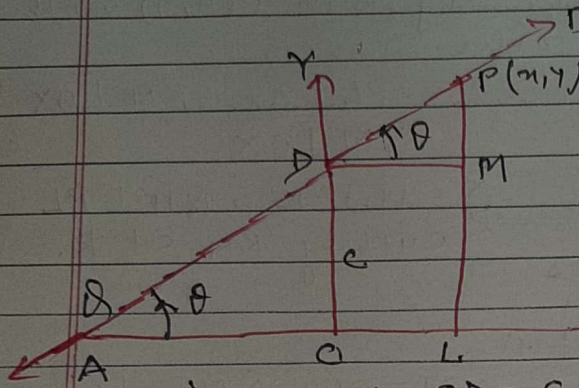 Y
P(x,y)
θ
D
M
C
B
θ
A
O
L